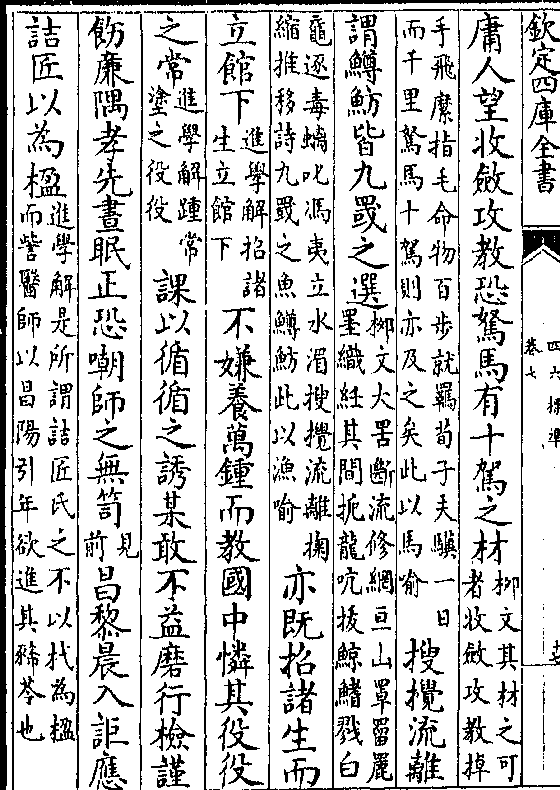 欽定四庫全書
四六標準
卷七
庸人望收斂攻教恐駑馬有十駕之材柳文其材之可者收斂攻教掉
手飛縻指毛命物百步就羈荀子夫驥一日而千里駑馬十駕則亦及之矣此以馬喻搜攪流離
謂鱒魴皆九罭之選柳文大罟斷流修網亘山罩罶麗罣織紝其間扼龍吭拔鯨鰭戮白
黿逐毒螭叱馮夷立水湄搜攪流離掬縮推移詩九罭之魚鱒魴此以漁喻亦既招諸生而
立館下進學解招諸生立館下不嫌養萬鍾而教國中憐其役役
之常進學解踵常塗之役役課以循循之誘某敢不益磨行檢謹
飭廉隅孝先晝眠正恐嘲師之無笥見前昌黎晨入詎應
詰匠以為楹進學解是所謂詰匠氏之不以杙為楹而訾醫師以昌陽引年欲進其豨苓也